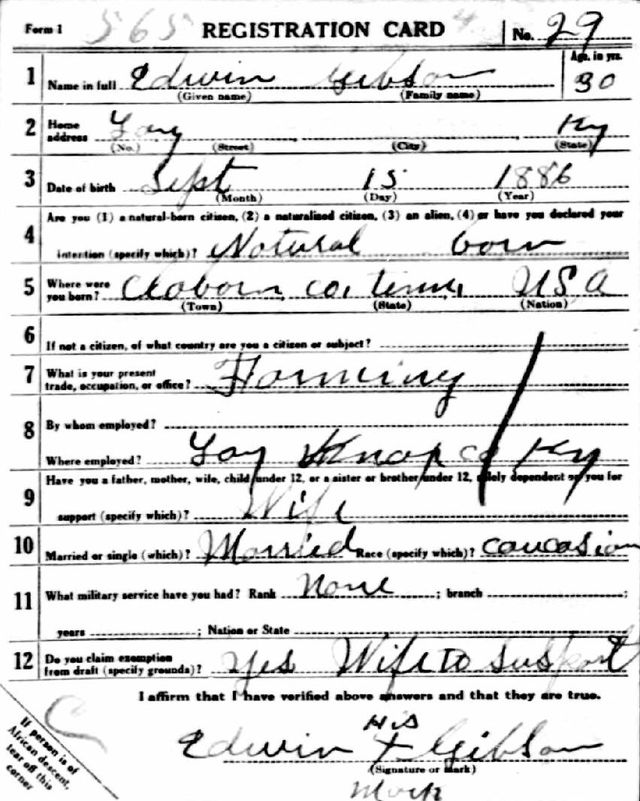 Form 1 565 REGISTRATION CARD 4 No. 29
1 Name in full Edwin Gibson Age, in yrs. 30
(Given name) (Family name)
2 Home address Gay Ky
(No.) (Street) (City) (State)
3 Date of birth Sept 15 1886
(Month) (Day) (Year)
4 Are you (1) a natural-born citizen, (2) a naturalized citizen, (3) an alien, (4) or have you declared your
intention (specify which)? Natural born
5 Where were you born? Claborn co, tenn, USA
(Town) (State) (Nation)
6 If not a citizen, of what country are you a citizen or subject?
7 What is your present trade, occupation, or office? Farming
8 By whom employed?
Where employed? Gay Knox co Ky
9 Have you a father, mother, wife, child under 12, or a sister or brother under 12, solely dependent on you for
support (specify which)? Wife
10 Married or single (which)? Married Race (specify which)? caucasian
11 What military service have you had? Rank None ; branch ;
years ; Nation or State
12 Do you claim exemption from draft (specify grounds)? Yes Wife to support
I affirm that I have verified above answers and that they are true.
His
Edwin X Gibson
(Signature or mark)
Mark
If person is of
African descent,
tear off this
corner